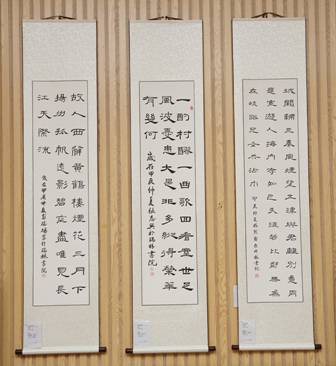 城闕輔三秦風煙望五津與君離別意同
是宦遊人海內存知己天涯若比鄰無為
在歧路兒女共沾巾
一酌村醪一曲歌回看塵世足
風波憂患大是非多縱得榮華
有幾何
歲在甲辰仲夏
書院
故人西辭黃鶴樓煙花三月下
揚州孤帆遠影碧空盡唯見長
江天際流
書院